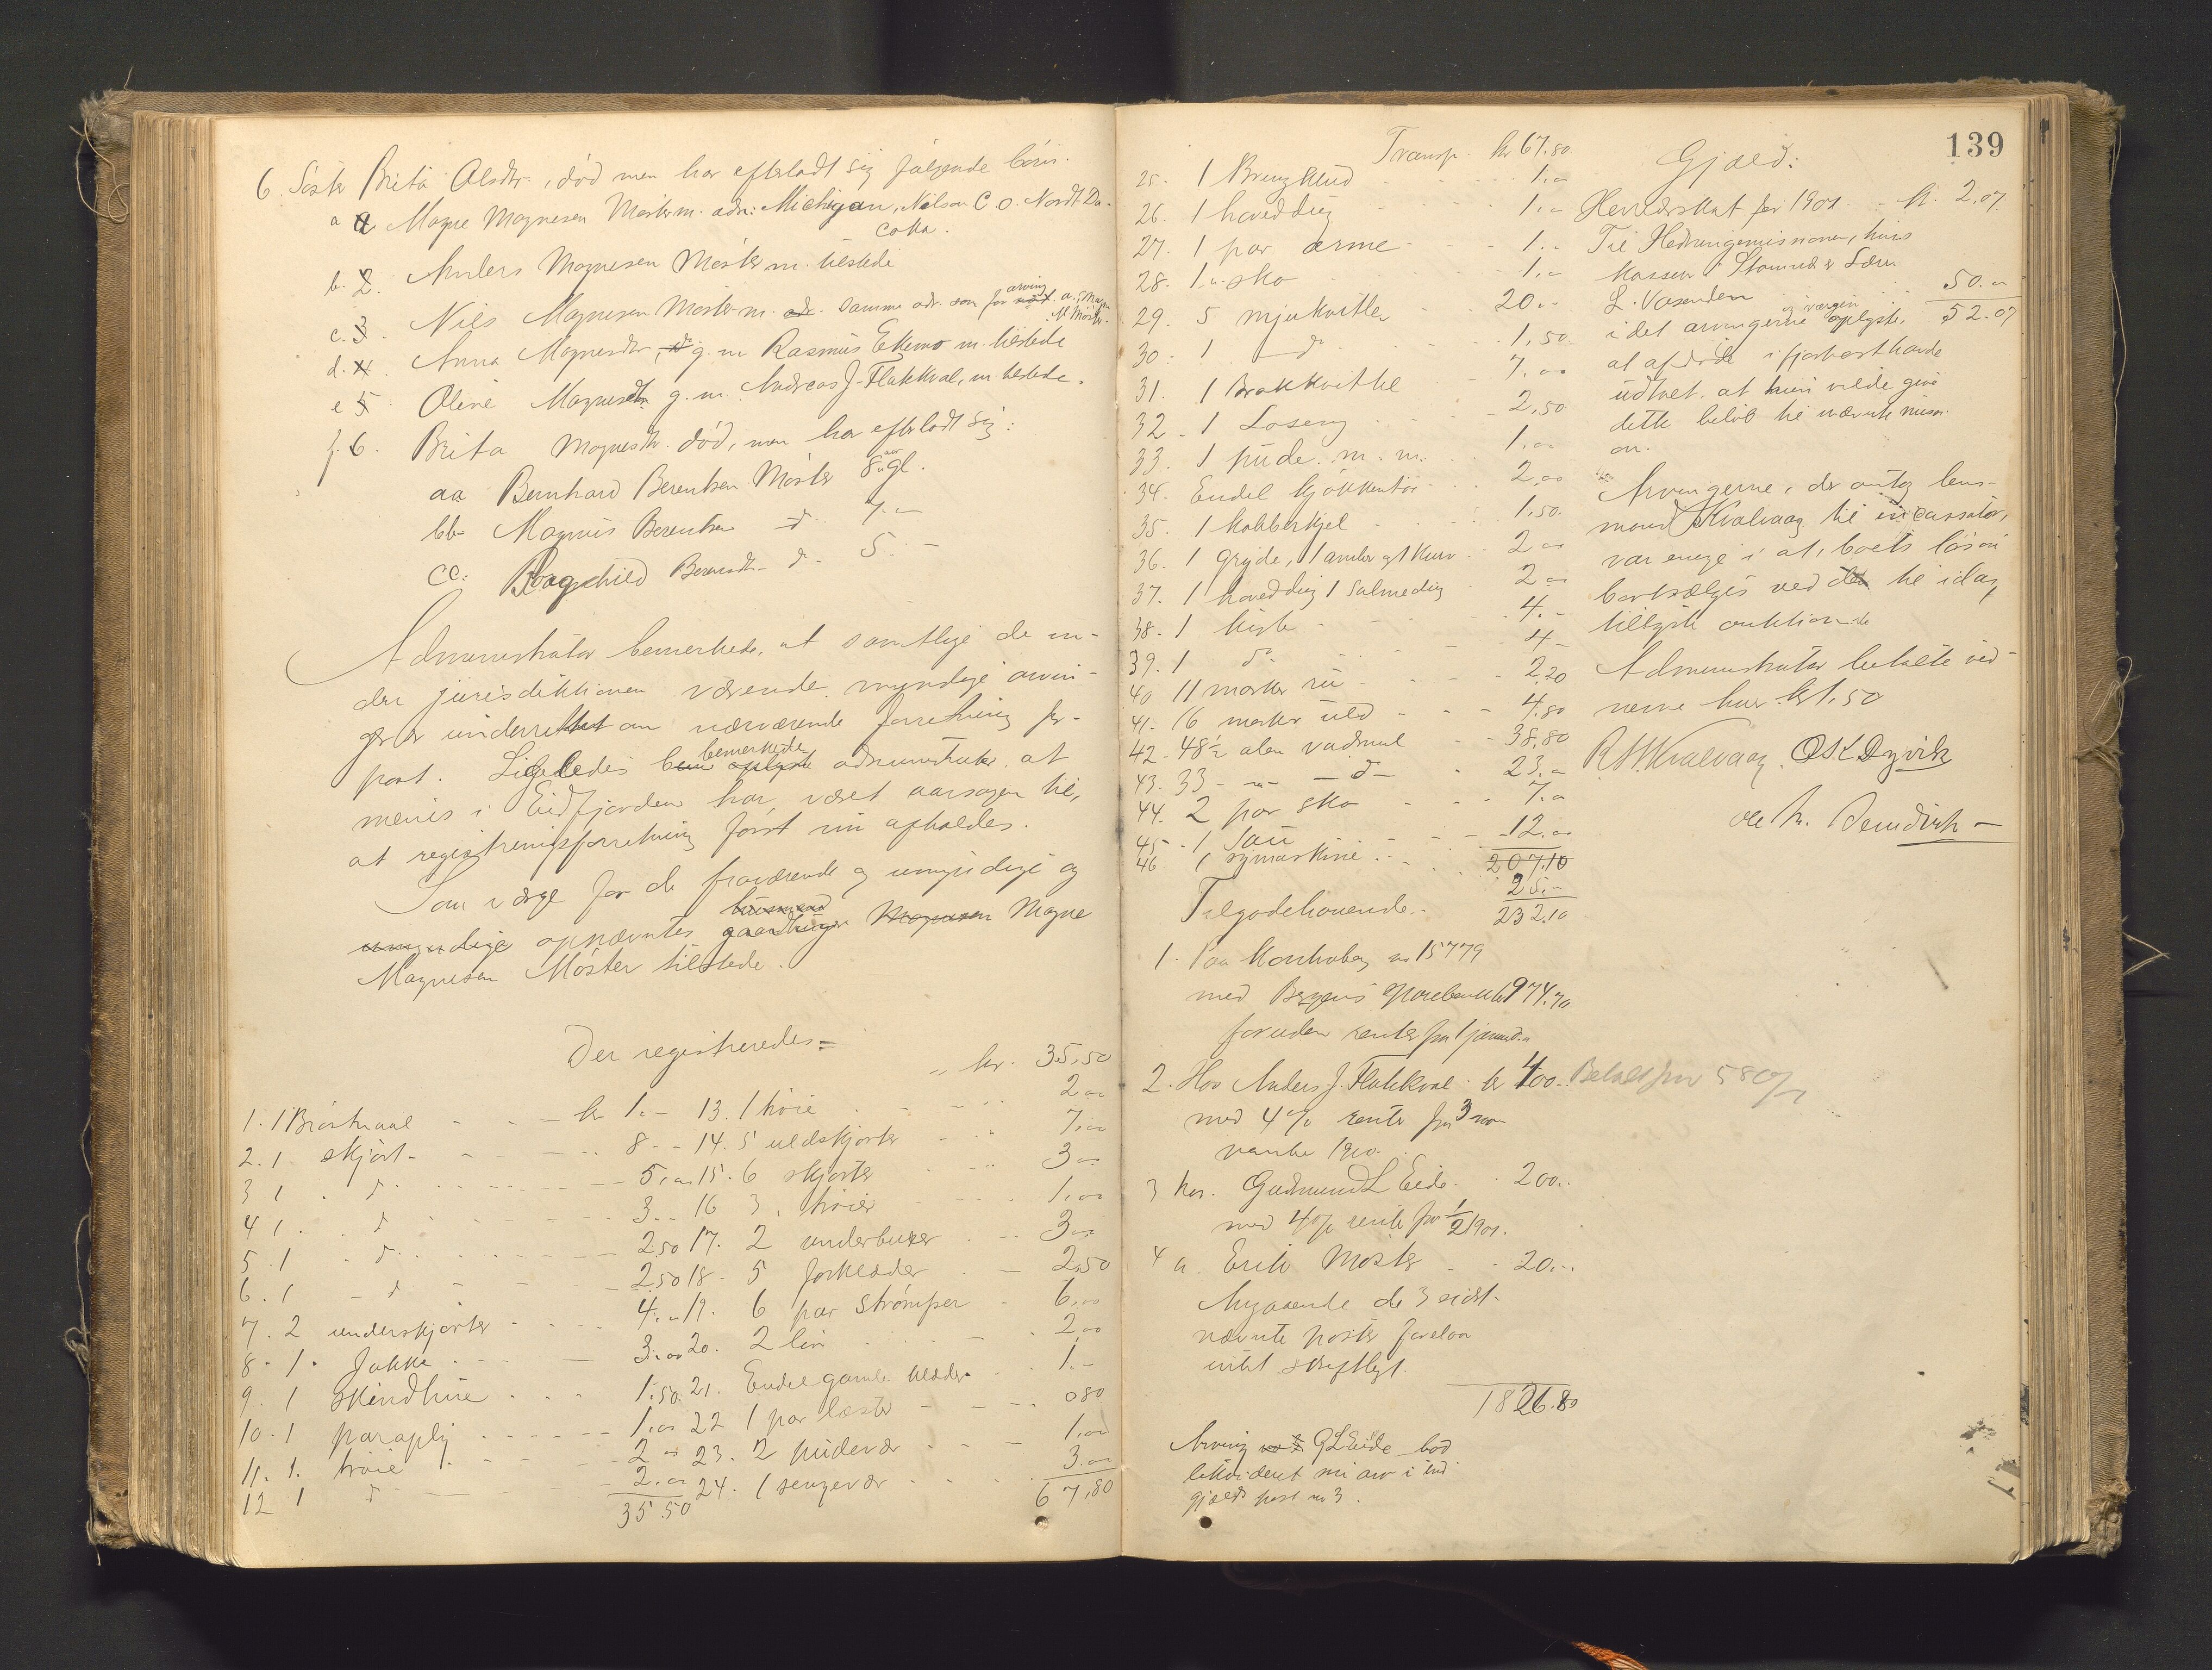 6. Søster Brita Olsdtr., død men har efterladt sig følgende børn.
a Magne Magnesen Møster m. adr: Michigan, Nelson C O. Nordt Da-
cota.
b. 2. Anders Magnesen Møster m. tilstede
c. 3. Nils Magnesen Møster m. adr. samme adr. som for arving a, Magne
M Møster.
d. 4. Anna Magnesdtr, g. m. Rasmus Ekemo m. tilstede
e 5 Oline Magnesdtr g. m. Andreas J. Flatekval, m. tilstede.
f. 6. Brita Magnesdtr. død, men har efterladt sig:
aa Bernhard Berentsen Møster 8 aar gl.
bb Magnus Berentsen d 7 "
cc: Borghild Berentsdtr d. 5. "
Administrator bemerkede, at samtlige de in-
den jurisdiktionen værende myndige arvin-
ger er underrettet om nærværende forretning for-
post. Ligeledes bemerkede administrator at
menis i Eidfjorden har været aarsagen til,
at registreringsforretning først nu afholdes.
Som værge for de fraværende og umyndige og
umyndige opnævntes husmand gaardbruger Magnesen Magne
Magnesen Møster tilstede.
Der registreredes:
" kr. 35,50
1. 1 Brøstnaal - - kr 1.- 13. 1 trøie 2 00
2. 1 skjørt 8 - 14. 5 uldskjorter 7,00
3 1 d 5,00 15. 6 skjorter 3 00
4 1 d 3.. 16 3. trøier 1,00
5. 1 d 2,50 17. 2 underbuxer 3 00
6. 1 d 2,50 18. 5 forklæder 2,50
7. 2 underskjorter 4.00 19. 6 par strømper 6,00
8. 1. Jakke 3.00 20. 2 lin 2,00
9. 1 skindhue 1.50. 21. Endel gamle klæder 1.-
10. 1 paraply 1.00 22 1 par læster 0 80
11. 1. trøie 2 00 23. 2 pudevær 1,00
12 1 d 2.00 24. 1 sengevær 3.00
35.50
67,80
139
Transp. kr 67.80
25. 1 1,00
26. 1 hoveddug 1,-
27. 1 par ærme 1..
28. 1 " sko 1,-
29. 5 mjukvitler 20..
30. 1 d 1,50
31. 1 Brokkvittel 7.00
32. 1 2,50
33. 1 pude m. m. 1,00
34. Endel kjøkkentøi 2,00
35. 1 kobberkjel 1,50
36. 1 gryde, 1 ambar og 1 kurv 2 00
37. 1 hoveddug 1 salmedug 2 00
38. 1 kiste 4.-
39. 1 d 4.-
40 11 marker 2,20
41. 16 marker uld 4,80
42. 48½ alen vadmel 38,80
43. 33 - " - d - 23.-
44. 2 par sko 7.-
45. 1 sau 12.00
46 1 symaskine 207.10
25.-
232.10
Tilgodehavende.
1. Paa Kontrabog no 15779
med Bergens Sparebank kr 974.70
foruden renter fra 1 januar d.a
2. Hos Anders J. Flatekval kr 400.. Betalt
med 4 % rente fra 3 no-
vember 1900.
3 hos. Gudmund L Eide 200..
med 4 % rente fra ½ 1901.
4 a. Erik Møster 20.-
Angaaende de 3 sidst-
nævnte poster forelaa
intet skriftligt.
1826.80
Arving G L Eide bad
likvideret sin arv i ind
gjæld post no 3.
Gjæld:
Herredsskat for 1901 kr. 2.07
Til Hedningemissionen, hvis
kasserer
L. Vasenden 50.00
i det arvingerne og værgen oplyste, 52.07
at afdøde i fjorhøst havde
udtalt, at hun vilde give
dette beløb til nævnte missi-
on.
Arvingerne, der antog lens-
mand Kvalvaag til incassator,
var enige i at boets løsøre
bortsælges ved den til idag
tillyste auktion
Administrator betalte vid-
nerne hver kr 1,50
R. H. Kvalvaag. O S L Dyvik